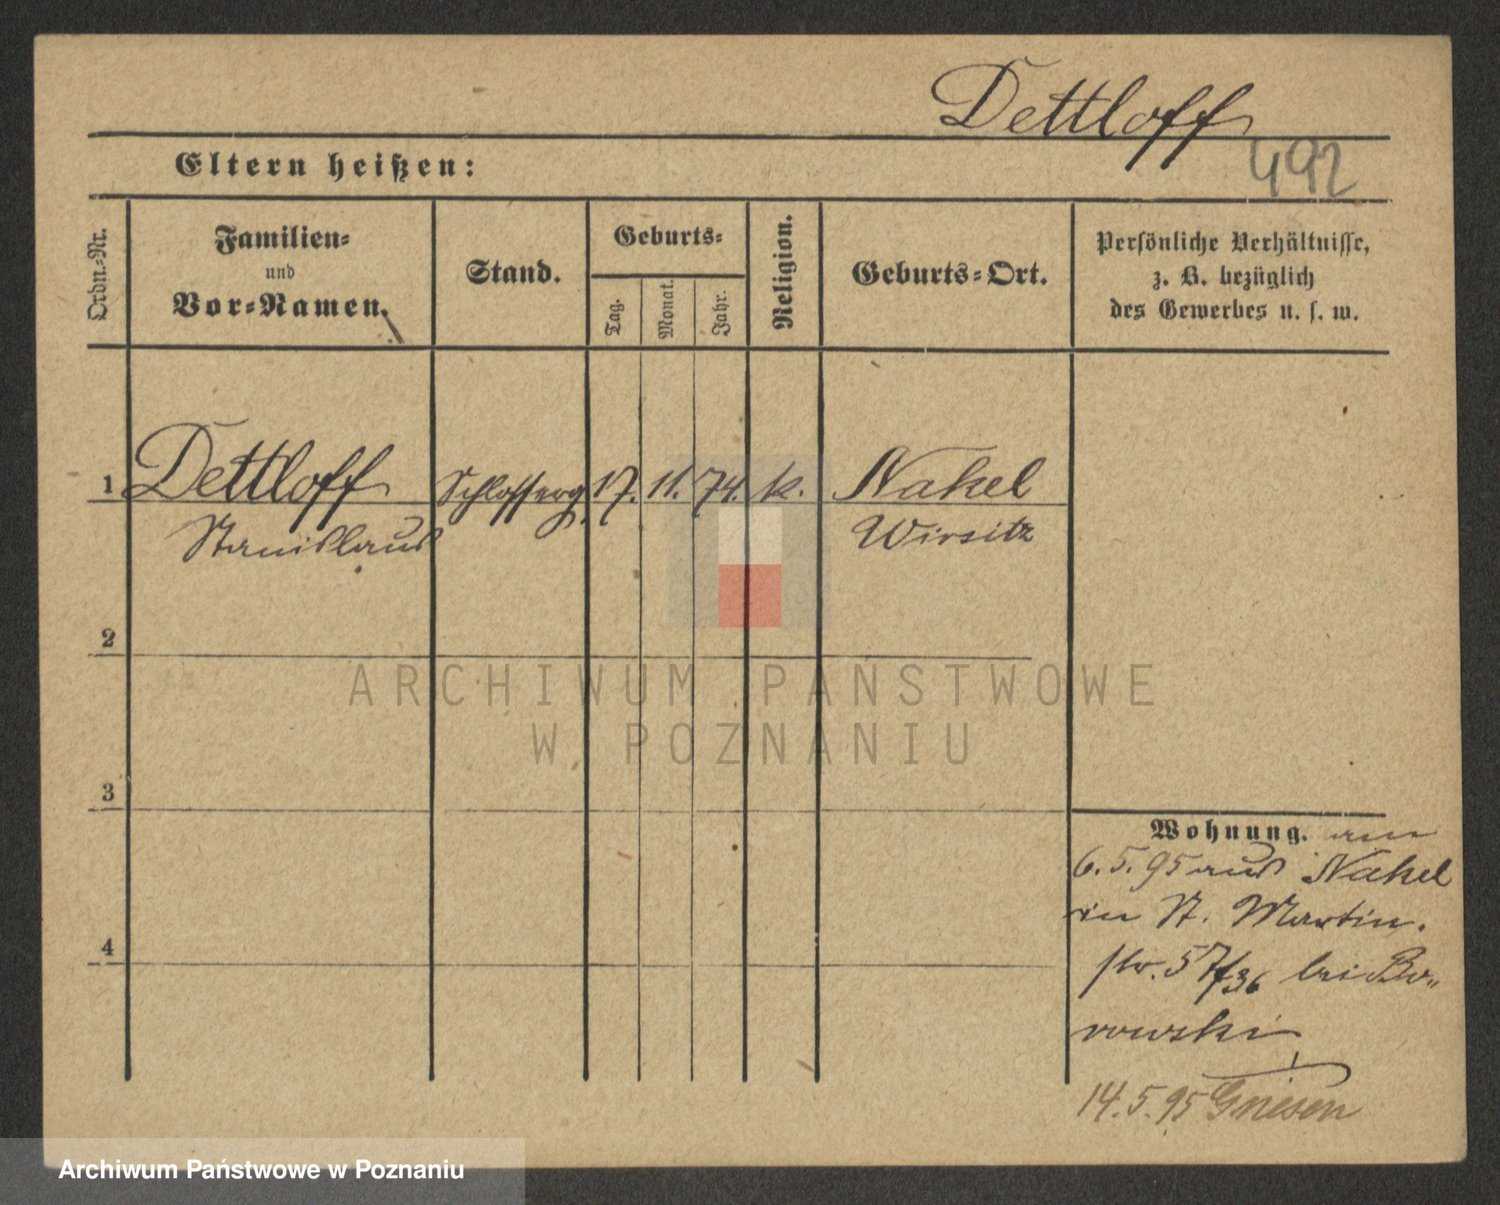 Dettloff
492
Eltern heißen:
Ordn.-Nr.
Familien-
und
Vor-Namen.
Stand.
Geburts-
Tag.
Monat.
Jahr.
Religion.
Geburts-Ort.
Persönliche Verhältnisse,
z. B. bezüglich
des Gewerbes u. s. w.
1 Dettloff Schlosserg. 17. 11. 74. k. Nakel
Stanislaus Wirsitz
2
ARCHIWUM PAŃSTWOWE
W POZNANIU
3
Wohnung. am
6.5.95 aus Nakel
in St. Martin.
str. 57/36 bei Bo-
rowski
4
14.5.95 Gnesen
Archiwum Państwowe w Poznaniu